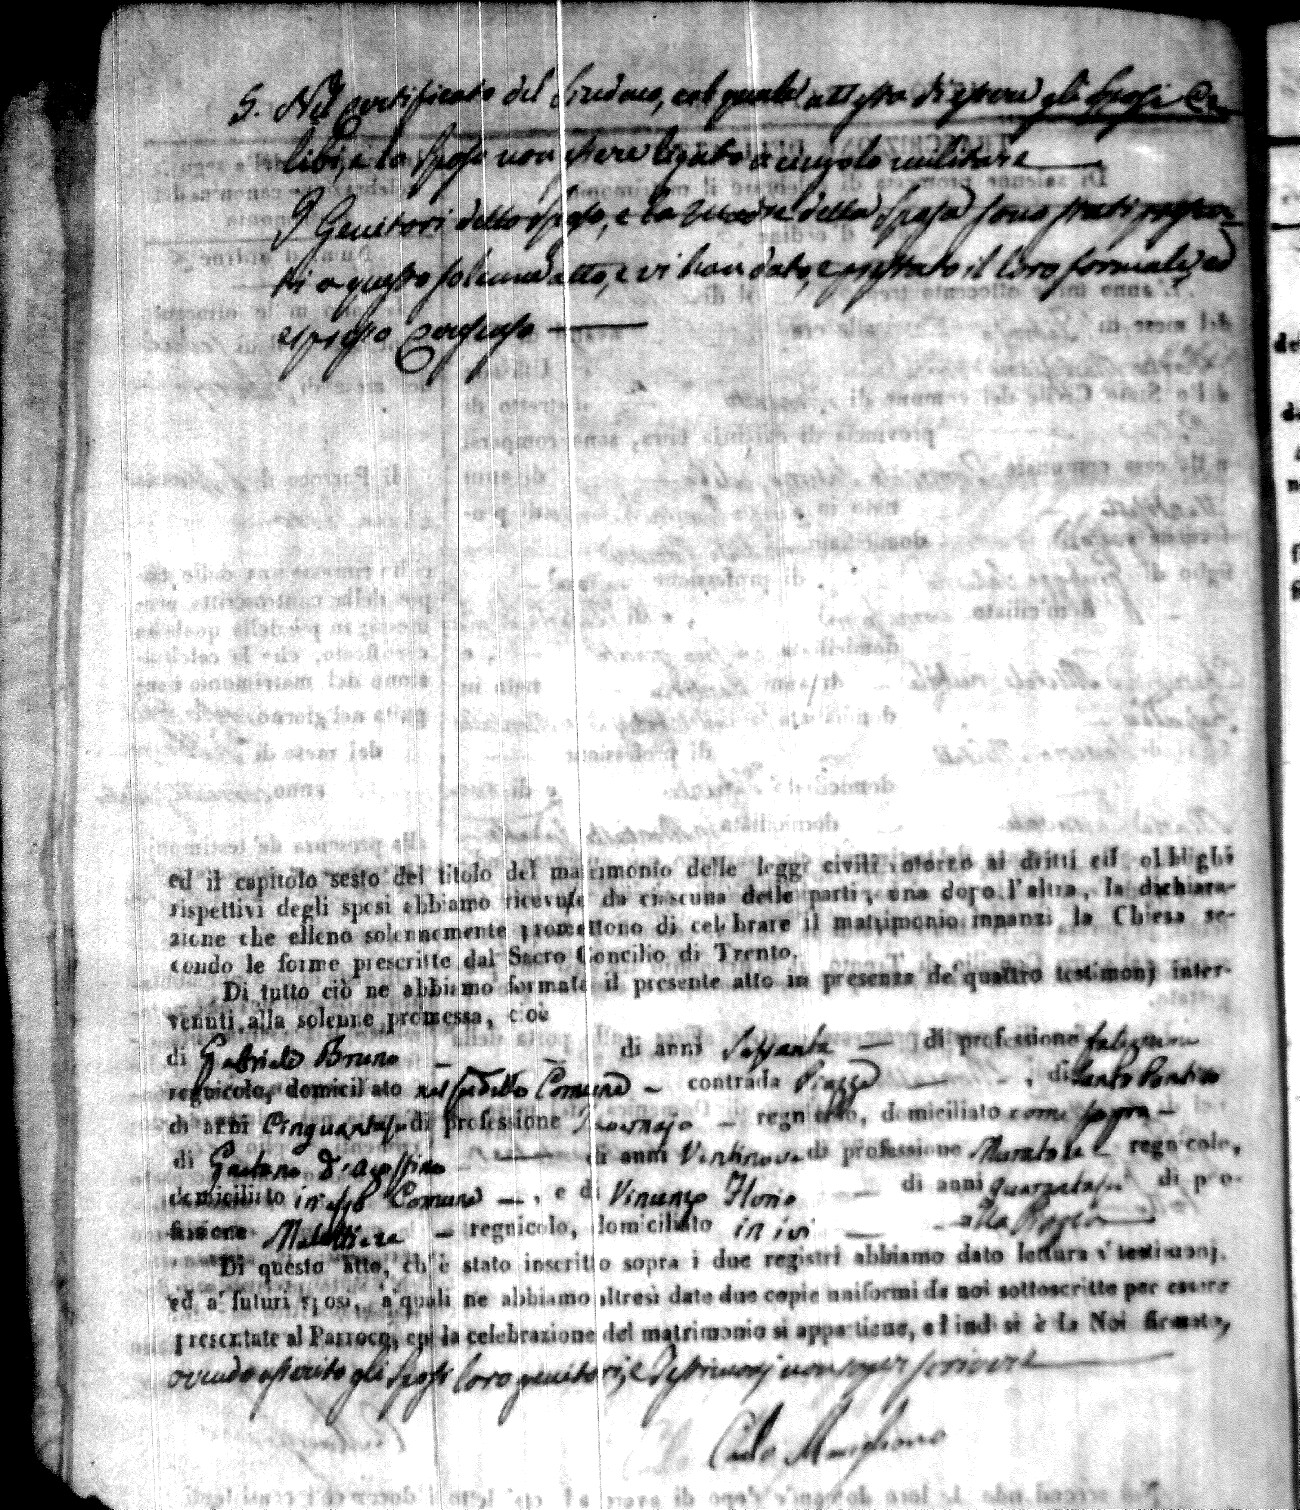 5. Nel certificato del Sindaco, col quale attesta di essere gli sposi Ce-
libi, e lo sposo non essere legato a vincolo militare
I Genitori dello sposo, e la Madre della sposa sono stati presen-
ti a questo solenne atto, e vi han dato, e prestato il loro formale, ed
espresso consenso
ed il capitolo sesto del titolo del matrimonio delle leggi civili intorno ai dritti ed obblighi
rispettivi degli sposi abbiamo ricevuto da ciascuna delle parti, una dopo l'altra, la dichiara-
zione che elleno solennemente promettono di celebrare il matrimonio innanzi la Chiesa se-
condo le forme prescritte dal Sacro Concilio di Trento.
Di tutto ciò ne abbiamo formato il presente atto in presenza de' quattro testimonj inter-
venuti alla solenne promessa, cioè
di Gabriele Bruno di anni Sessanta di professione falegname
regnicolo, domiciliato nel suddetto Comune contrada Piazza , di Santo
di anni Cinquanta di professione regnicolo, domiciliato come sopra
di Gaetano D'Agostino di anni Ventinove di professione Muratore regnicolo,
domiciliato in esso Comune , e di Vincenzo Florio di anni quaranta di pro-
fessione regnicolo, domiciliato in ivi
Di questo atto, ch'è stato inscritto sopra i due registri abbiamo dato lettura a' testimonj,
ed a' futuri sposi, a' quali ne abbiamo altresì date due copie uniformi da noi sottoscritte per essere
presentate al Parroco, cui la celebrazione del matrimonio si appartiene, ed indi si è da Noi firmato,
avendo asserito gli sposi loro genitori, e Testimonj non saper scrivere